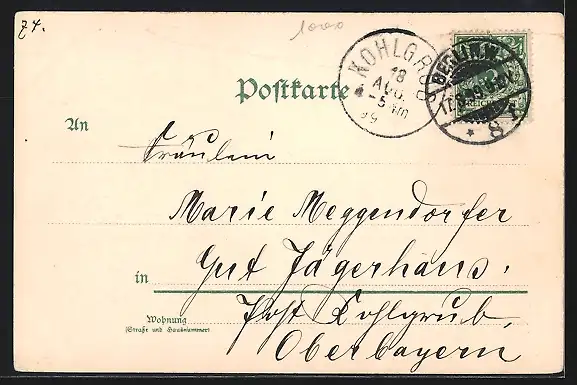 74.
1000
KOHLGRUB
18
AUG.
4-5 Nm
99
BERLIN, W.
17.8.99.
* 8
REICHSPOST
Postkarte
An
Fräulein
Marie Meggendorfer
in
Gut Jägerhaus.
Wohnung
(Straße und Hausnummer)
Post Kohlgrub,
Oberbayern